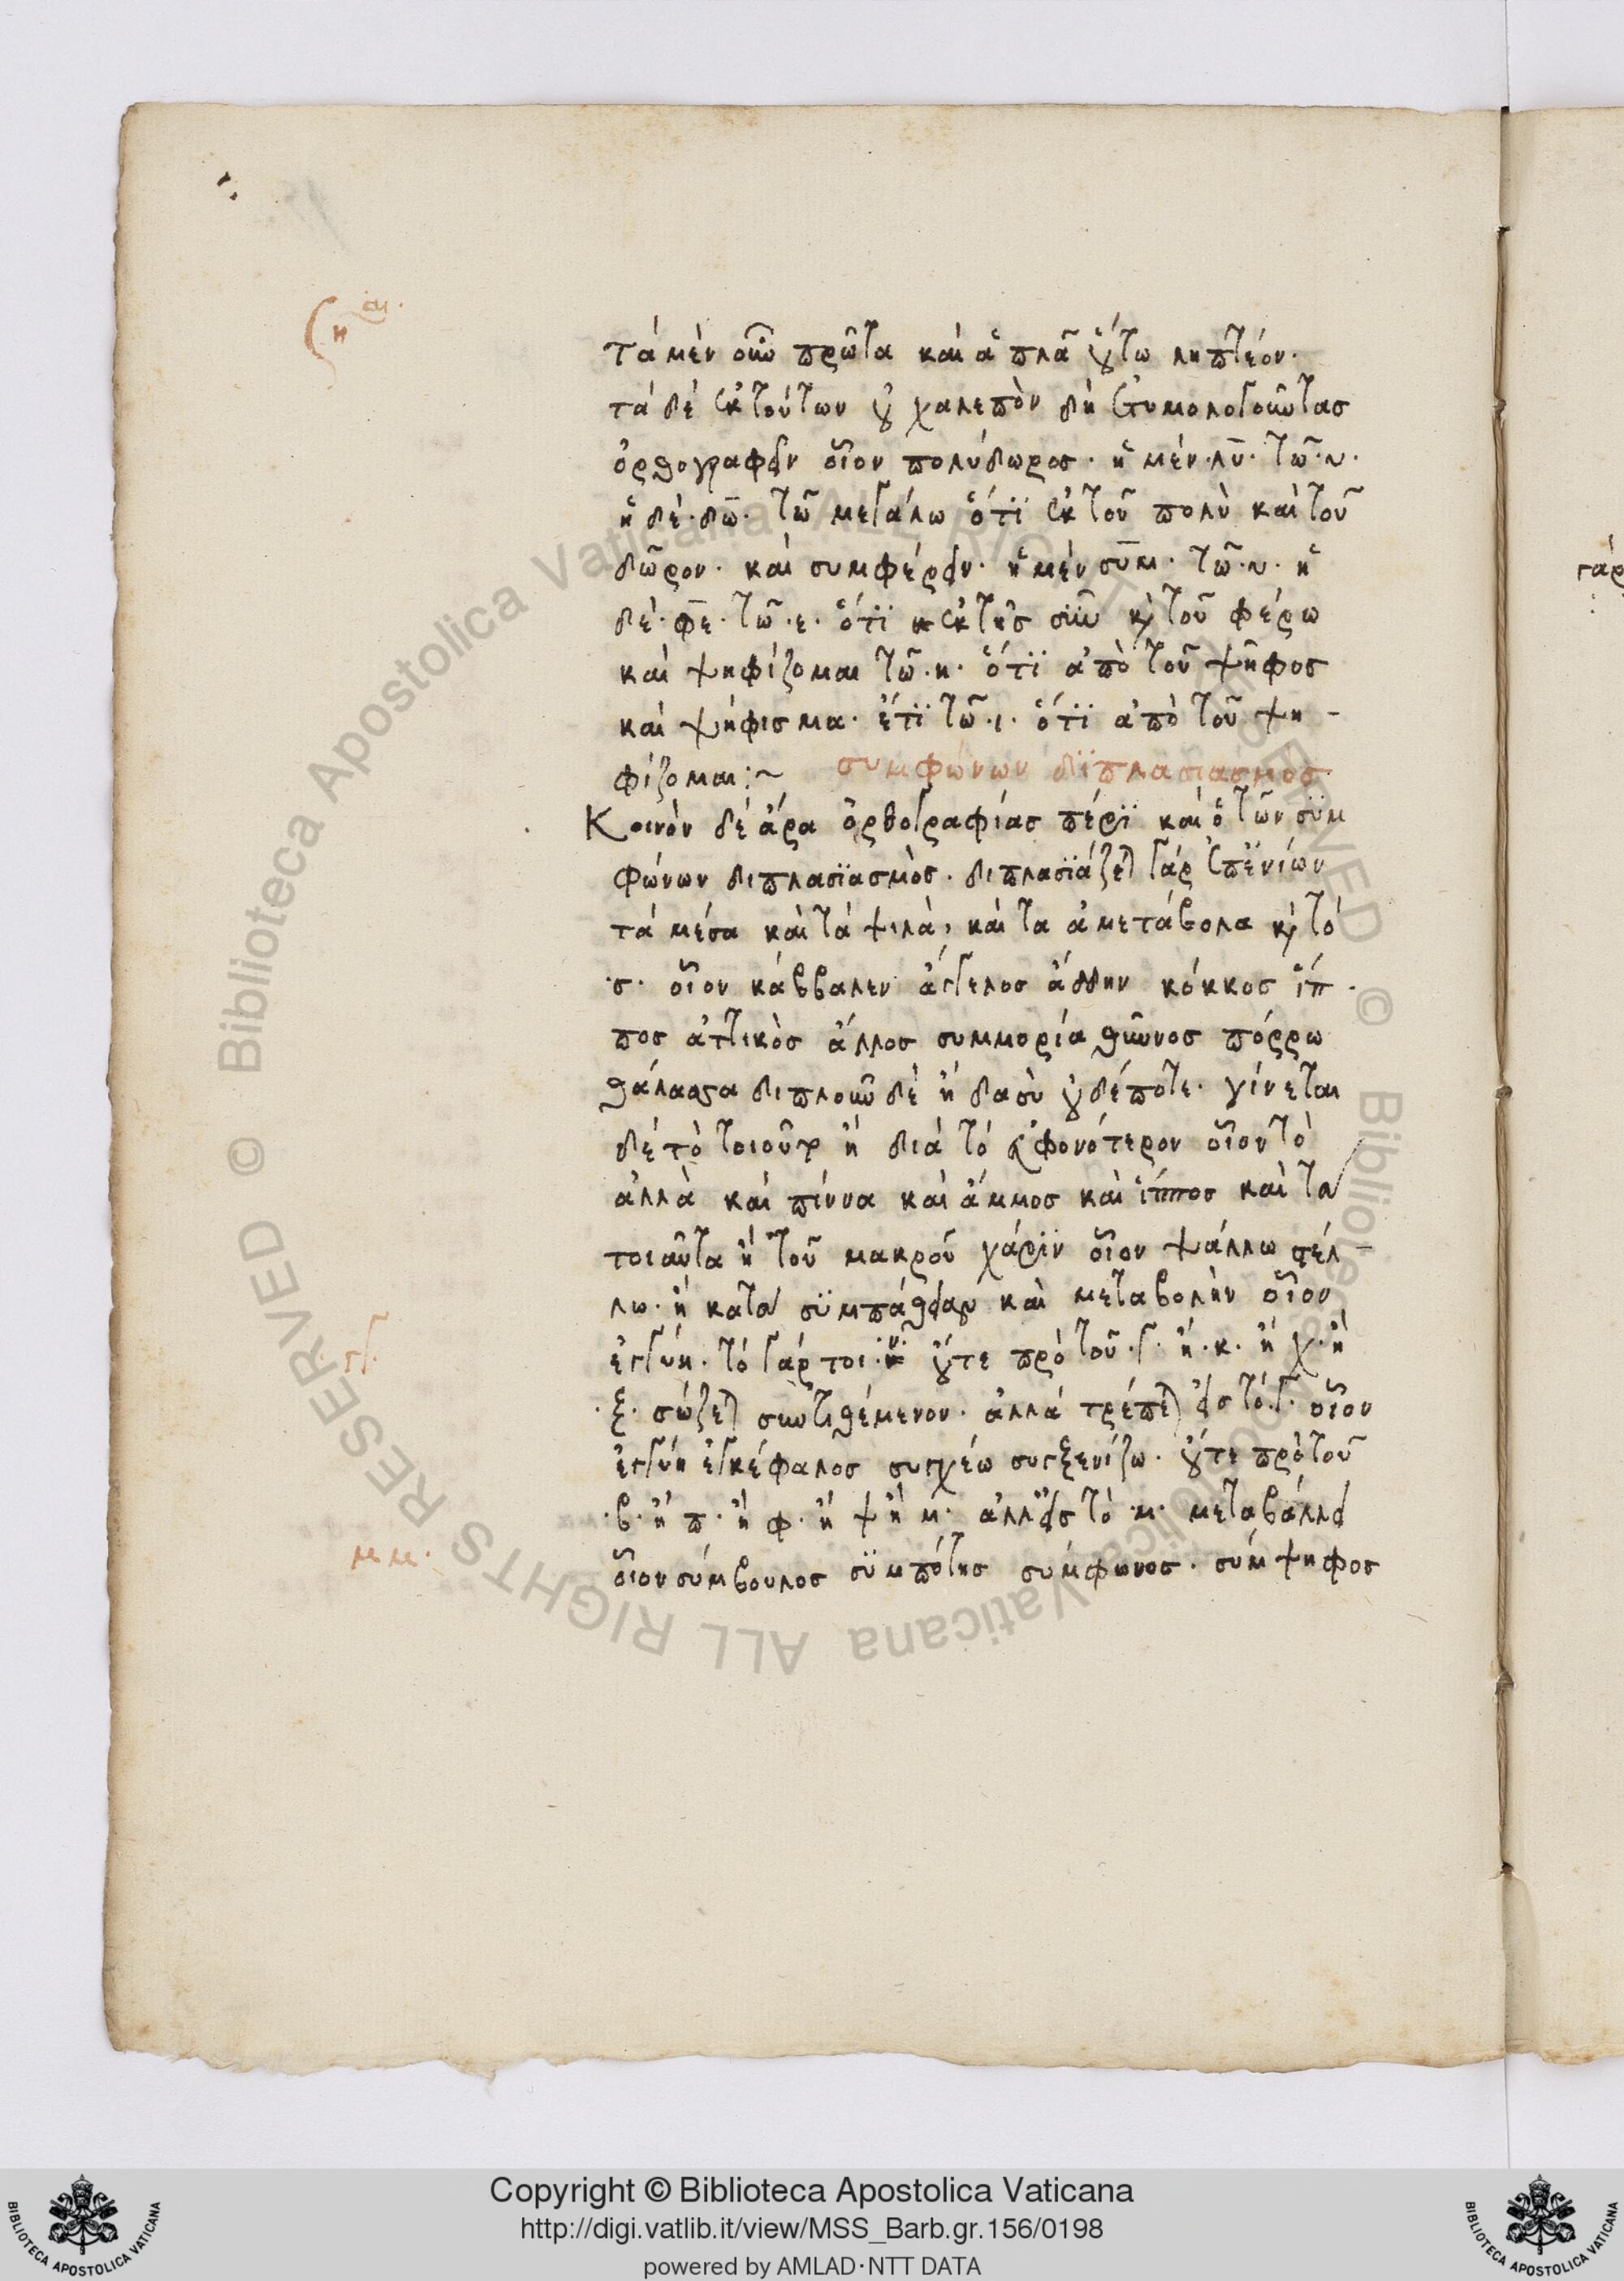 τὰ μὲν οὖν πρῶτα καὶ ἁπλᾶ οὕτω ληπτέον·
τὰ δὲ ἐκ τούτων οὐ χαλεπὸν δὴ ἐτυμολογοῦντας
ὀρθογραφεῖν οἷον πολύδωρος· ἡ μὲν ·λῡ· τῶ ·υ·
ἡ δὲ ·δω̄· τῶ μεγάλω ὅτϊ ἐκ τοῦ πολὺ καὶ τοῦ
δῶρον· καὶ συμφέρειν· ἡ μὲν συμ· τῶ ·υ· ἡ
δὲ ·φε· τῶ ·ε· ὅτϊ ἐκ τῆς σὺν καὶ τοῦ φέρω
καὶ ψηφίζομαι τῶ ·η· ὅτϊ ἀπὸ τοῦ ψῆφος
καὶ ψήφισμα· ἔτϊ τῶ ·ι· ὅτϊ ἀπὸ τοῦ ψη-
φίζομαι:~ συμφώνων διπλασιασμός
Κοινὸν δὲ ἄρα ὀρθογραφίας πέρϊ καὶ ὁ τῶν σϋμ
φώνων διπλασϊασμὸς· διπλασϊάζεται γὰρ ἐπ' ἐνίων
τὰ μέσα καὶ τὰ ψιλὰ, καὶ τα ἀμετάβολα καὶ τό
·σ· οἷον κάββαλεν ἄγγελος ἄδδην κόκκος ἵπ·
πος ἀττικὸς ἄλλος συμμορία θῦννος πόρρω
θάλασσα διπλοῦν δὲ ἢ δασὺ οὐδέποτε· γίνεται
δὲ τὸ τοιοῦτον ἢ διὰ τὸ εὐφονότερον οἷον τὸ
ἀλλὰ καὶ πίννα καὶ ἄμμος καὶ ἵππος καὶ τὰ
τοιαῦτα ἢ τοῦ μακροῦ χάρϊν οἷον ψάλλω στέλ-
λω· ἢ κατὰ σϋμπάθειαν καὶ μεταβολὴν οἷον
ἐγγύη· τὸ γάρ τοι ·ν· οὔτε πρὸ τοῦ ·γ· ἢ ·κ· ἢ χ· ἢ
·ξ· σώζεται συντιθέμενον· ἀλλὰ τρέπεται εἰς τὸ ·γ· οἷον
ἐγγύη ἐγκέφαλος συγχέω συγξενίζω· οὔτε πρὸ τοῦ
·β· ἢ π· ἢ φ· ἢ ψ ἢ μ· ἀλλ' εἰς τὸ ·μ· μεταβάλλει
οἷον σύμβουλος σϋμπότης σύμφωνος· σύμψηφος
γγ·
μμ·
© Biblioteca Apostolica Vaticana ALL RIGHTS RESERVED © Biblioteca Apostolica Vaticana ALL RIGHTS RESERVED
Copyright © Biblioteca Apostolica Vaticana
http://digi.vatlib.it/view/MSS_Barb.gr.156/0198
powered by AMLAD·NTT DATA
BIBLIOTECA APOSTOLICA VATICANA
BIBLIOTECA APOSTOLICA VATICANA